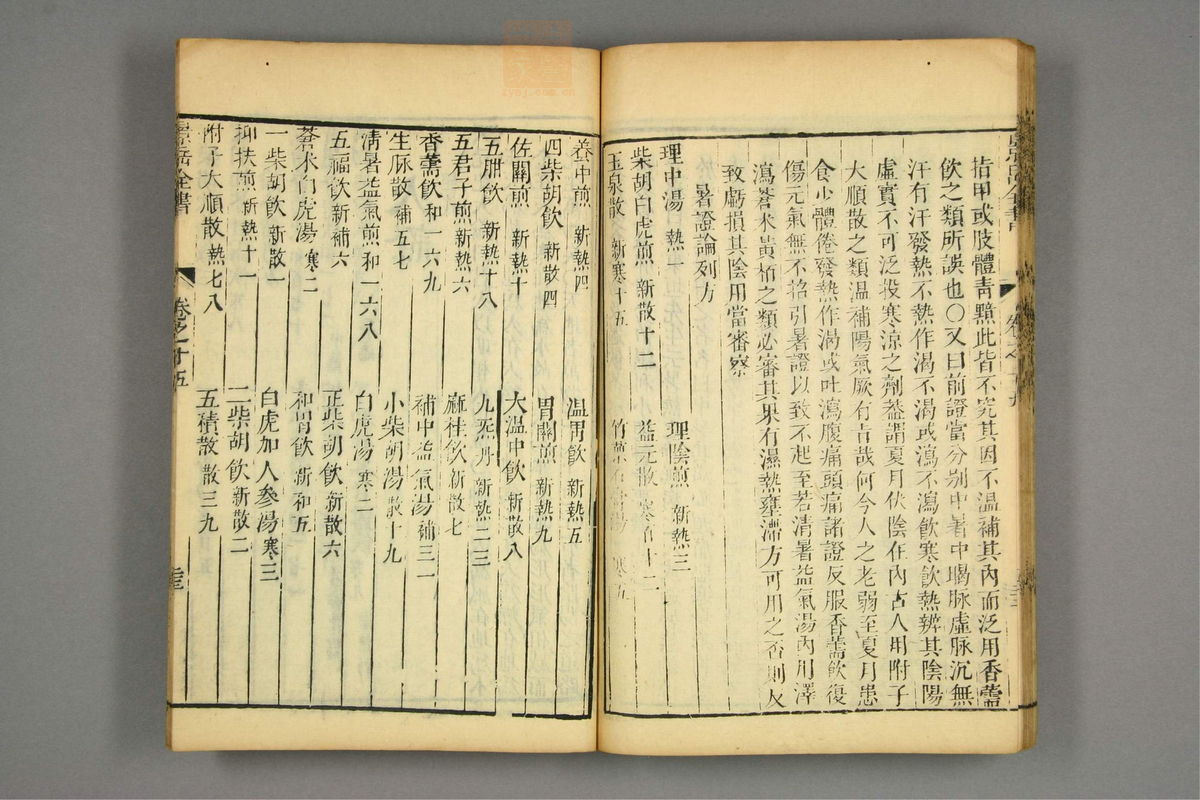 指甲或肢體青黯此皆不究其因不温補其內而泛用香薷
飲之類所誤也〇又曰前證當分别中暑中暍脉虚脉沉無
汗有汗發熱不熱作渴不渴或瀉不瀉飲寒飲熱辨其陰陽
虚實不可泛投寒凉之劑蓋謂夏月伏陰在内古人用附子
大順散之類温補陽氣厥有旨哉何今人之老弱至夏月患
食少體倦發熱作渴或吐瀉腹痛頭痛諸證反服香薷飲復
傷元氣無不招引暑證以致不起至若清暑益氣湯内用澤
瀉蒼术黃栢之類必審其果有濕熱壅滯方可用之否則反
致虧損其陰用當審察
暑證論列方
理中湯 熱一 理陰煎 新熱三
柴胡白虎煎 新散十二 益元散 寒百十二
玉泉散 新寒十五 竹葉石膏湯 寒五
養中煎 新熱四 温胃飲 新熱五
四柴胡飲 新散四 胃關煎 新熱九
佐關煎 新熱十 大温中飲 新散八
五胂飲 新熱十八 九炁丹 新熱二三
五君子煎 新熱六 麻桂飲 新散七
香薷飲 和一六九 補中益氣湯 補三一
生脉散 補五七 小柴胡湯 散十九
清暑益氣煎 和一六八 白虎湯 寒二
五福飲 新補六 正柴胡飲 新散六
蒼术白虎湯 寒二 和胃飲 新和五
一柴胡飲 新散一 白虎加人參湯 寒三
抑扶煎 新熱十一 二柴胡飲 新散二
附子大順散 熱七八 五積散 散三九
景岳全書 卷之十五